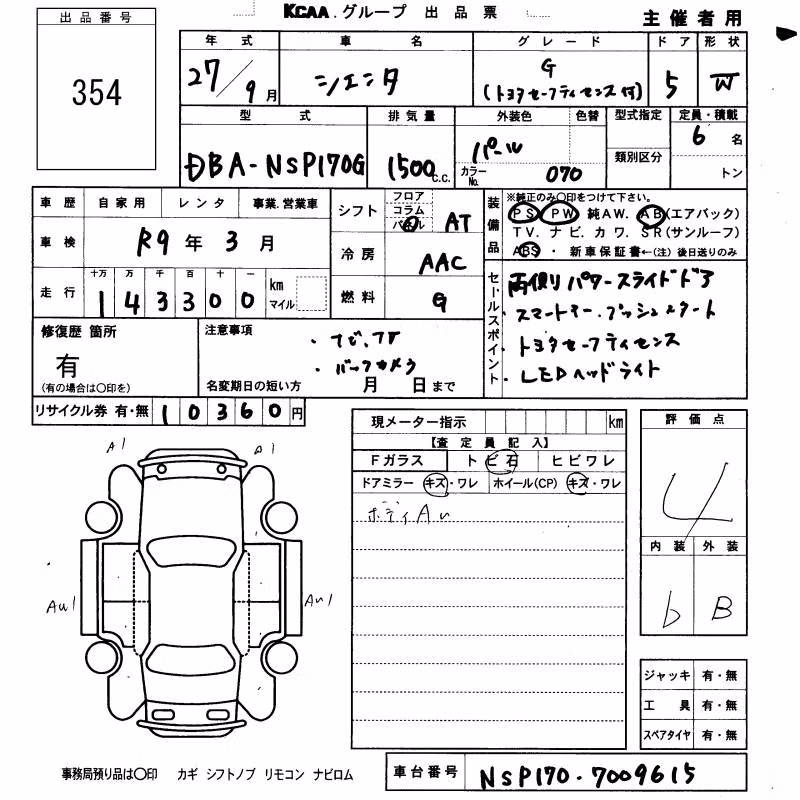 KCAA.グループ 出品票
主催者用
出品番号
354
年式 車名 グレード ドア 形状
27/9月 シエンタ G (トヨタセーフティセンス付) 5 W
型式 排気量 外装色 色替 型式指定 定員・積載
DBA-NSP170G 1500c.c. パール 6名
カラーNo. 070 類別区分 トン
車歴 自家用 レンタ 事業.営業車
車検 R9年 3月
走行 十万 万 千 百 十 一 km マイル
1 4 3 3 0 0
シフト フロア コラム パネル AT
冷房 AAC
燃料 G
装備品 ※純正のみ〇印をつけて下さい。
PS PW 純AW. AB(エアバック)
TV. ナビ. カワ. SR(サンルーフ)
ABS ・ 新車保証書←(注)後日送りのみ
セールスポイント
両側パワースライドドア
・スマートキー.プッシュスタート
・トヨタセーフティセンス
・LEDヘッドライト
修復歴 箇所
有
(有の場合は〇印を)
注意事項
・ナビ、TV
・バックカメラ
名変期日の短い方 月 日まで
リサイクル券 有・無 10360円
現メーター指示 km
【査定員記入】
Fガラス トビ石 ヒビワレ
ドアミラー キズ・ワレ ホイール(CP) キズ・ワレ
ボディAu
評価点
4
内装 外装
b B
A1 A1
AW1 AW1
ジャッキ 有・無
工具 有・無
スペアタイヤ 有・無
事務局預り品は〇印 カギ シフトノブ リモコン ナビロム
車台番号 NSP170-7009615